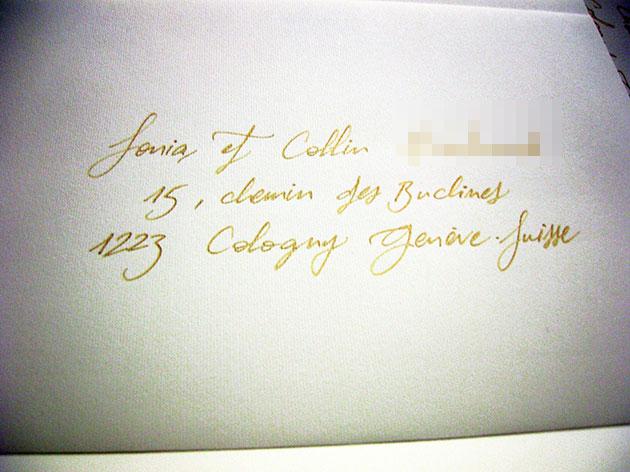 Sonia et Collin
15, chemin des Buclines
1223 Cologny Genève-Suisse